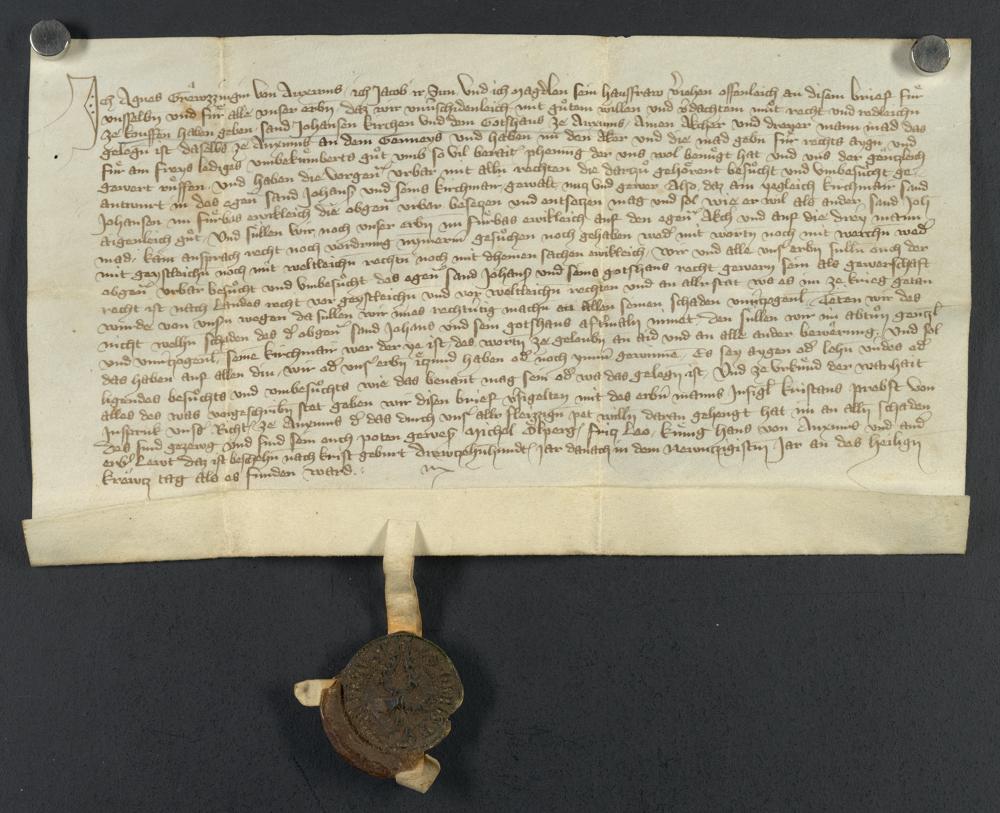 Ich Agnes Grëwzzingin von Anxums, ich Jacob ir Sun, Und ich Magdlen sein hausfraw, v̓iehen offenleich an disem brief für
unsselbn und für alle unser erbn, daz wir unu̓schidenleich mit gůtem willen und v̓dachtem můt recht und redleichn
ze kauffen haben geben sand Johansen kirchen und dem Gotshaus ze Anxums, Ainen Akcher und dreyer mann mad das
gelegn ist daselbs ze Anxums an dem und haben im den aker und die mad gebn für rechts aygn, und
für ain freys lediges unbekümberts gůt umb so vil berait phening der uns wol benügt hat und uns der genczleich
gewert růffen. und haben die vorgen̄ urbar mit alln rechten die darzu gehörent besůcht und unbesůcht ge-
antwurt in des egen̄ sand Johans und seins kirchmair gewalt nucz und gewer, Also, daz ain yegleich kirchmair sand
Johansen nu fürbas ewikleich die obgen̄ urbar beseczen und entseczen mag und sol wie er wil als ander sand Joh̄
aigenleich gůt. Und süllen wir noch unser erbn nu fürbas ewikleich auf den egen̄ Akch̓ und auf die drey mann
mad, kain ansprach recht noch vordrung nymerm̓ gesůchen noch gehaben wed̓ mit wortn noch mit werchn wed̓
mit geystleichn noch mit weltleichn rechtn noch mit dhainen sachen ewikleich, wir und alle uns̓ erbn sulln auch der
obgen̄ urbar besůcht und unbesůcht des egen̄ sand Johans und seins gotshaus recht gewern sein als gewerschaft
recht ist nach Landes recht vor geystleichn und vor weltleichn rechten und an all̓ stat wo es im ze krieg getan
würde von uns̓n wegen da sullen wir imes rechtuertig machn an allen seinen schaden unu̓czogenl̄, Teten wir des
nicht wellhn schaden des d̓ obgen̄ sand Johans und sein gotshaus nimet, den sullen wir im abtůn genczl̄
und unu̓czogent seine kirchmair wer der ye ist, des wortn ze gelaubn an aid und an alle ander bewërung, Und sol
das haben auf allen diu, wir od̓ uns̓ erbn iczund haben od̓ noch gewinne, Es sey aygen od̓ lehn v̓ndes od̓
ligendes besůchts und unbesůchts wie das benant mag sein od̓ wa das gelegn ist, Und ze urkund der warhait
alles des was vorgeschribn stet geben wir disen brief v̓sigelten mit des erb̓n manns Insigl̄ kristans probst von
Inspruk uns̓s Richt̓ ze Anxums d̓ das durch uns̓ all̓ fleizzign pet willn daran gehengt hat im an alln schaden
Des sind gezewg und sind sein auch poten gewes̄, Michel , Fricz Leo, künig Hans von Anxums und and̓
erb̓ Lewt, daz ist beschehn nach krist geburt drewczehnhund̓t Jar danach in dem Newnczigistn̄ Jar an des heilign̄
krëwcz tag als es funden ward.